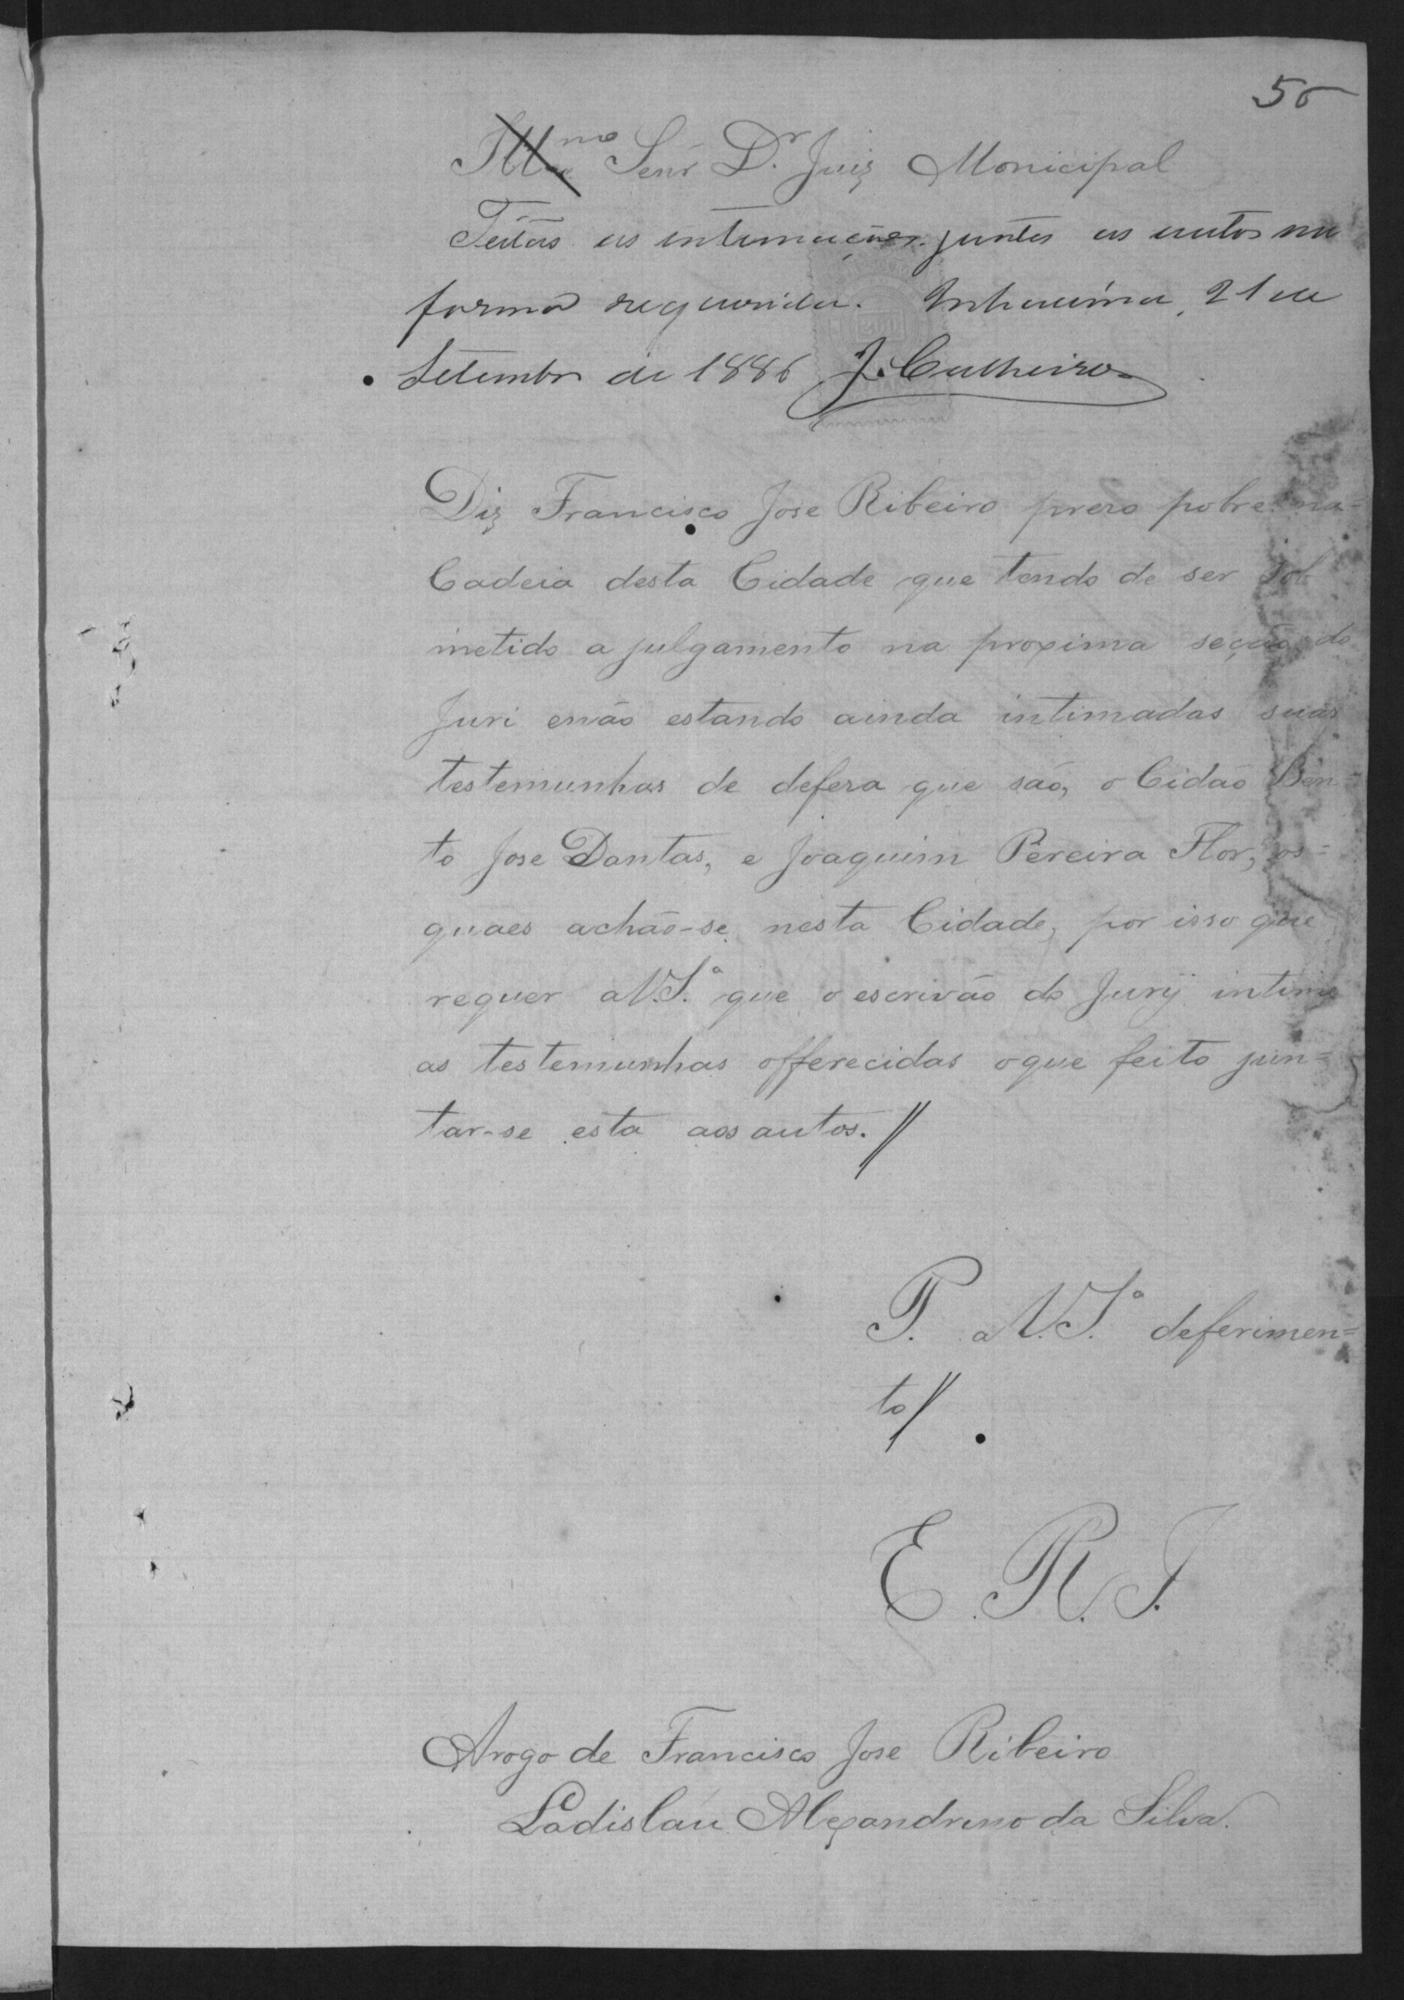 50
Illmo Senr Dr. Juiz Monicipal
Feitas as intimações, juntes as autos na
forma requerida. Inhauma, 21 de
Setembro de 1886 J. Calheiros
Diz Francisco Jose Ribeiro prezo pobre na=
Cadeia desta Cidade que tendo de ser sob
metido a julgamento na proxima seção do
Juri enão estando ainda intimadas suas
testemunhas de defeza que são, o Cidão Ben=
to Jose Dantas, e Joaquim Pereira Flor, os=
quaes achão-se nesta Cidade, por isso que
requer aV.Sa. que o escrivão do Jury intime
as testemunhas offerecidas oque feito jun=
tar-se esta aos autos.//
P. aV.Sa. deferimen=
to//.
E. R. J.
Arogo de Francisco Jose Ribeiro
Ladisláu Alexandrino da Silva.